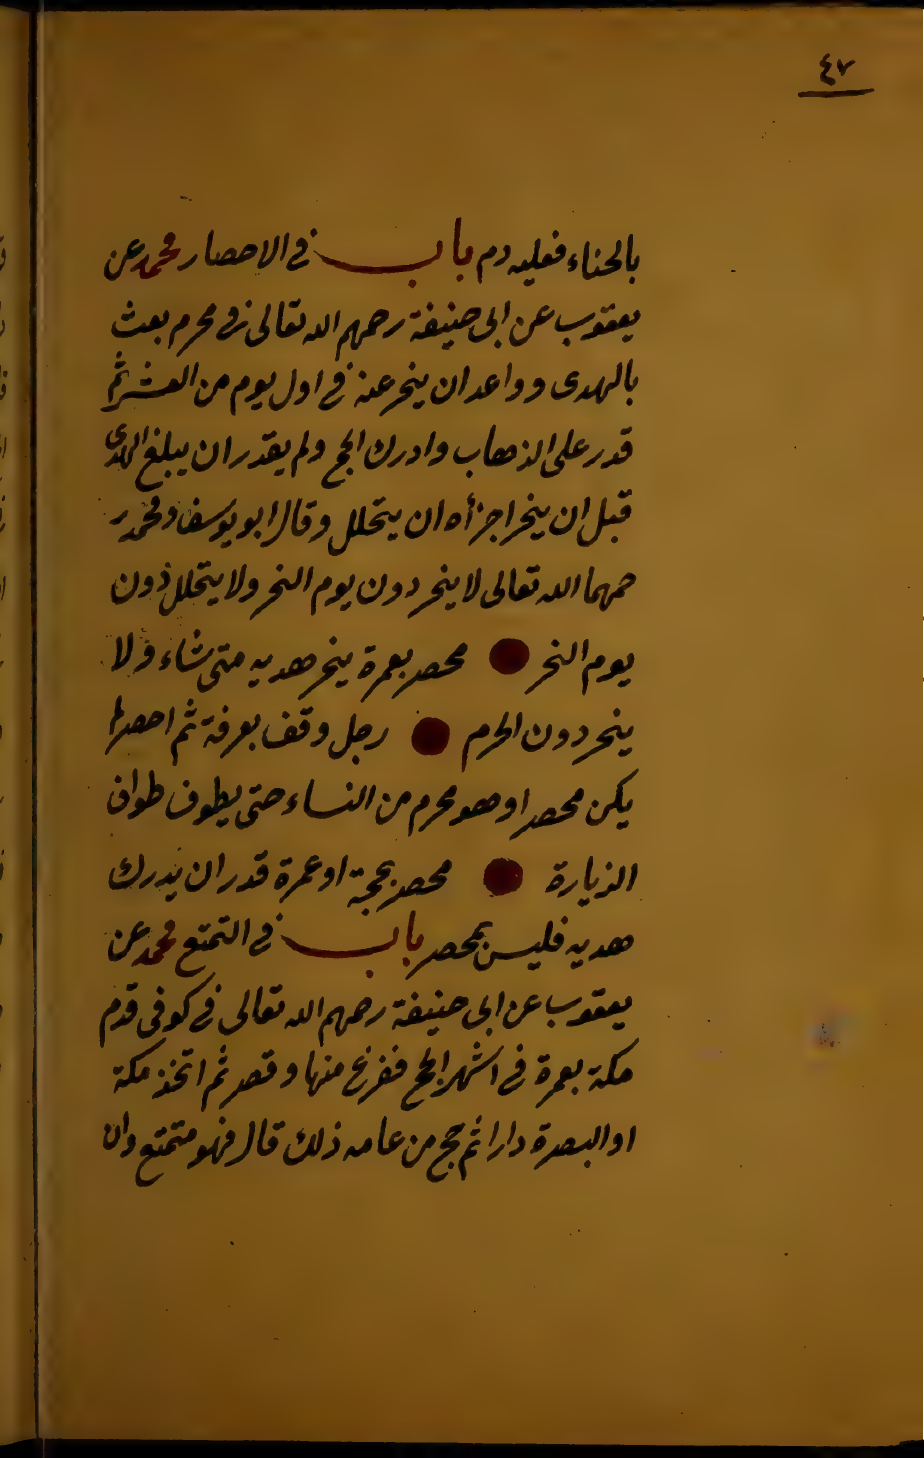 ٤٧
بالحناء فعليه دم باب في الاحصار محمد عن
يعقوب عن ابى حنيفة رحمهم الله تعالى في محرم بعث
بالهدى وواعد ان ينحر عنه في اول يوم من العشر ثم
قدر على الذهاب وادرك الحج ولم يقدر ان يبلغ الهدى
قبل ان ينحر اجزأه ان يتحلل وقال ابو يوسف ومحمد ر
حمهما الله تعالى لا ينحر دون يوم النحر ولا يتحلل دون
يوم النحر محصر بعمرة ينحر هديه متى شاء ولا
ينحر دون الحرم رجل وقف بعرفة ثم احصر لم
يكن محصرا وهو محرم من النساء حتى يطوف طواف
الزيارة محصر بحجة او عمرة قدر ان يدرك
هديه فليس بمحصر باب في التمتع محمد عن
يعقوب عن ابى حنيفة رحمهم الله تعالى في كوفى قدم
مكة بعمرة في اشهر الحج ففرغ منها وقصر ثم اتخذ مكة
او البصرة دارا ثم حج من عامه ذلك قال فهو متمتع وان